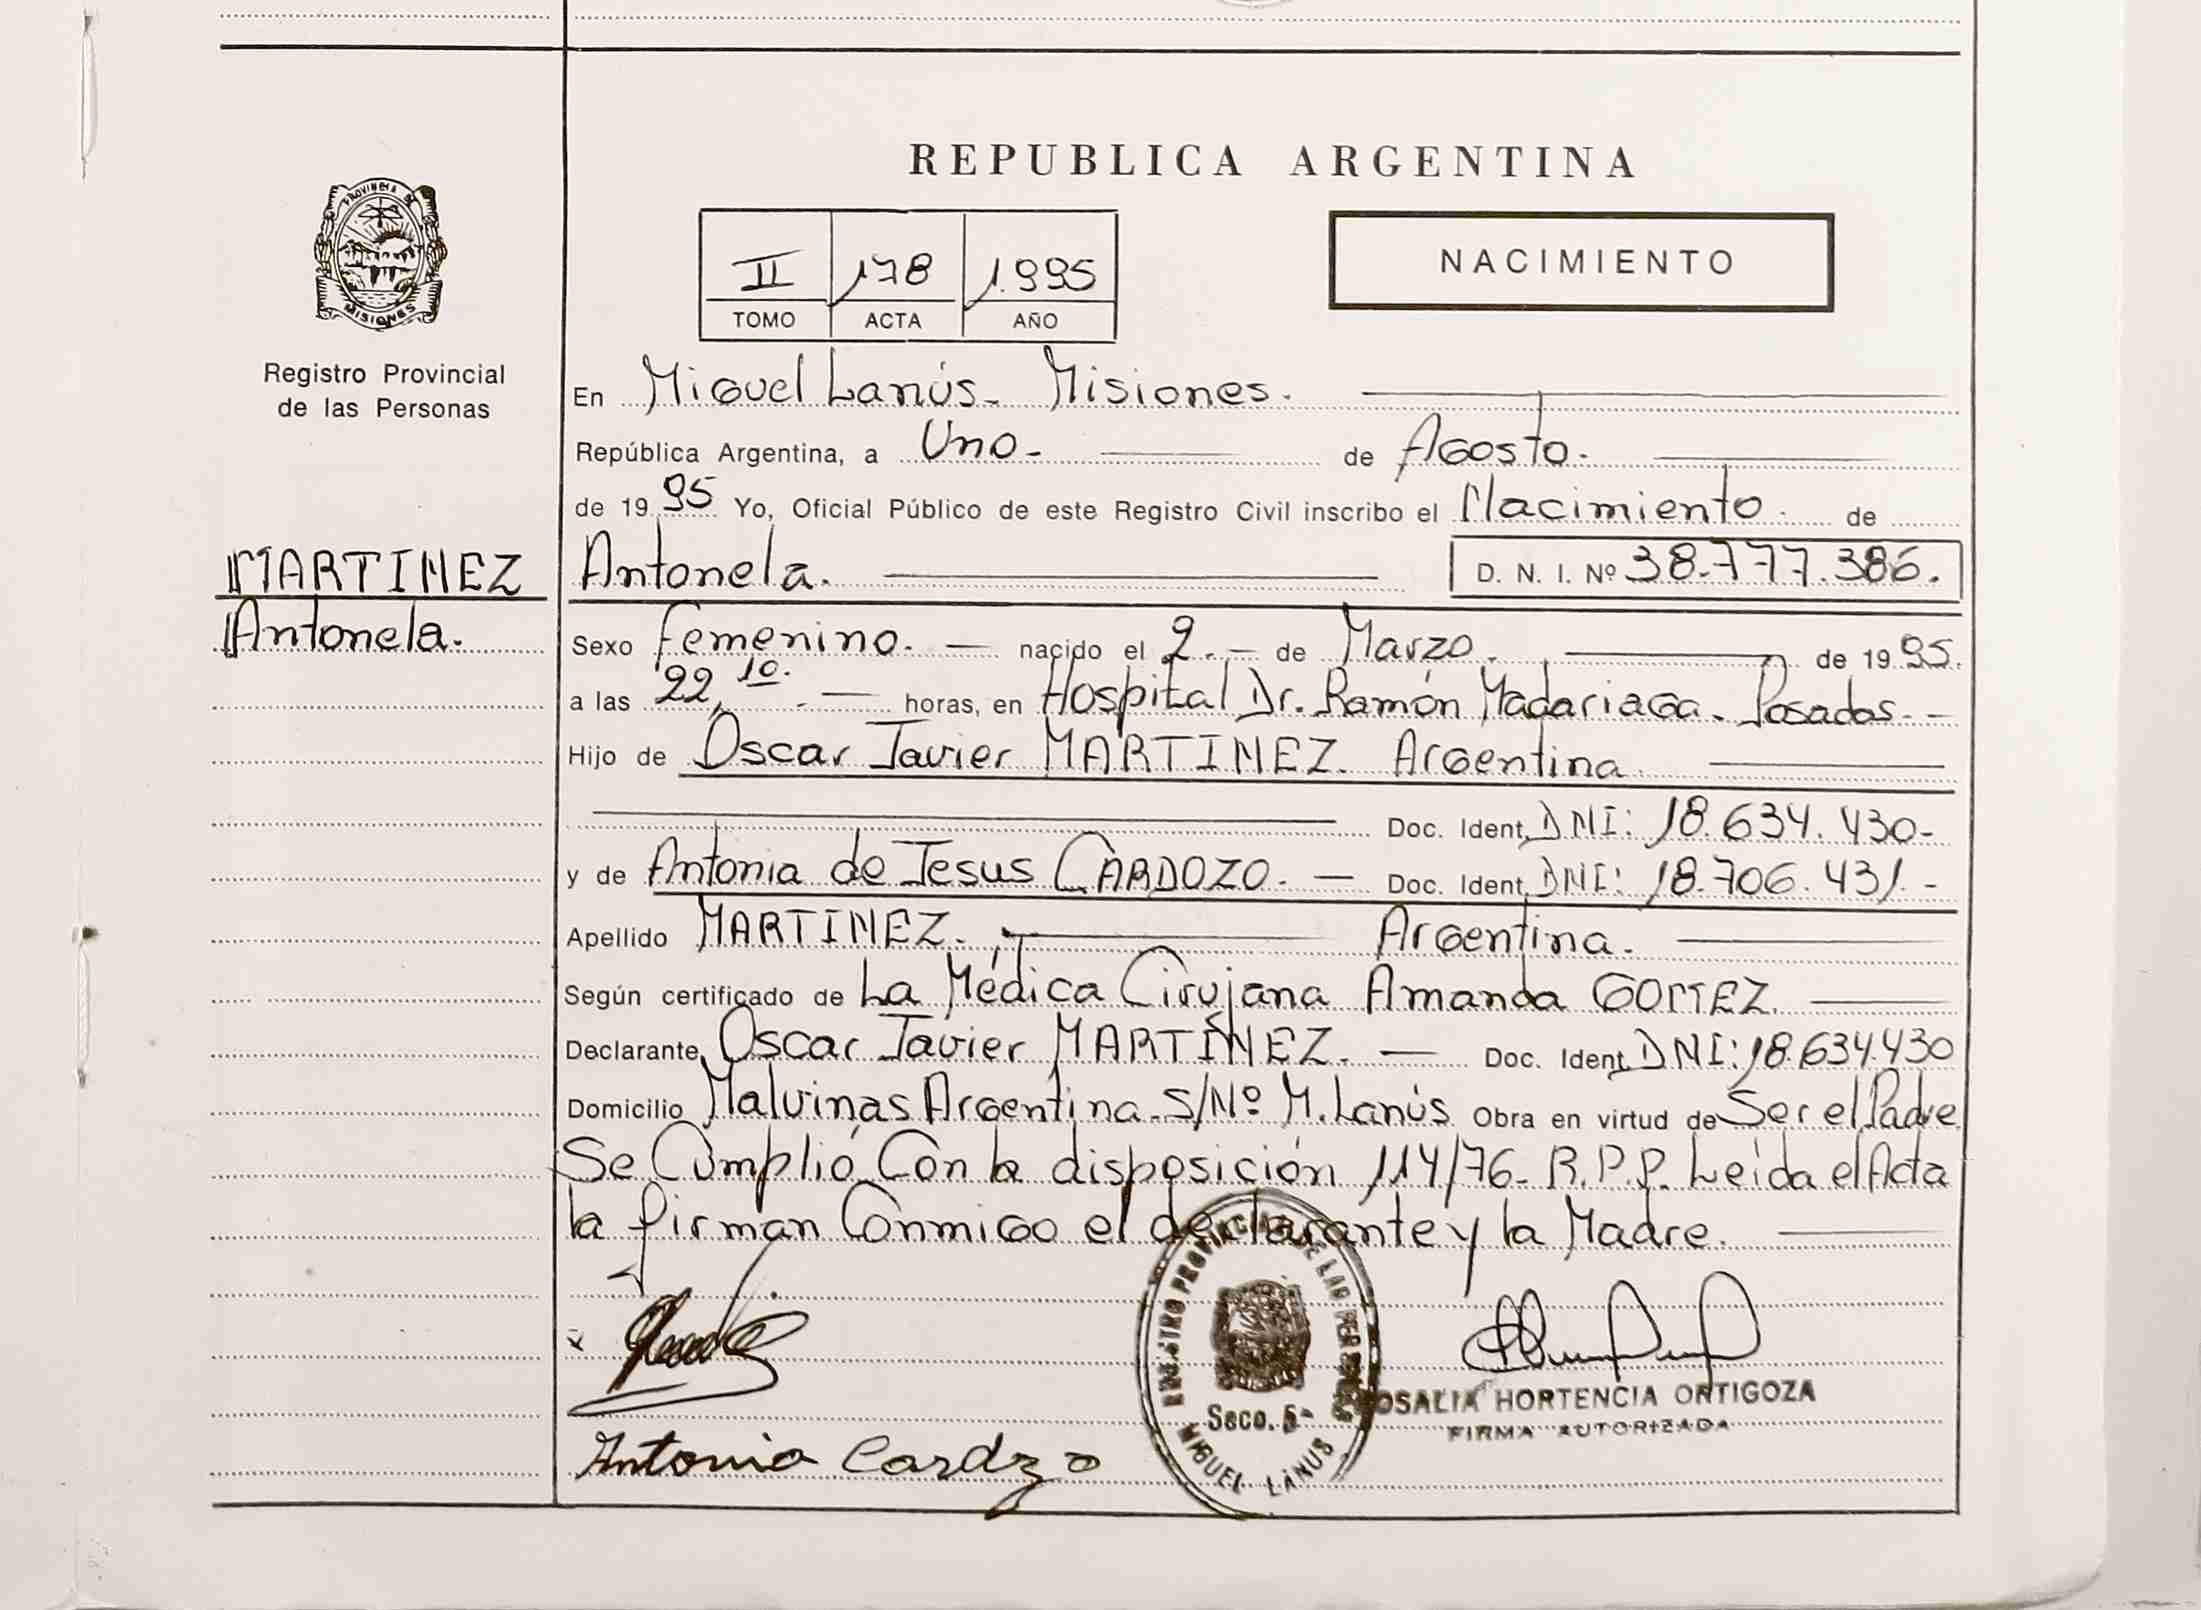 REPUBLICA ARGENTINA
PROVINCIA DE
MISIONES
Registro Provincial
de las Personas
II 178 1.995
TOMO ACTA AÑO
NACIMIENTO
En Miguel Lanús. Misiones.
República Argentina, a Uno. de Agosto.
de 1995 Yo, Oficial Público de este Registro Civil inscribo el Nacimiento. de
MARTINEZ
Antonela.
Antonela. D. N. I. Nº 38.777.386.
Sexo Femenino. nacido el 2. de Marzo. de 1995.
a las 22,10. horas, en Hospital Dr. Ramón Madariaga. Posadas.
Hijo de Oscar Javier MARTINEZ. Argentina.
Doc. Ident. DNI: 18.634.430-
y de Antonia de Jesus CARDOZO. Doc. Ident. DNI: 18.706.431.-
Apellido MARTINEZ. Argentina.
Según certificado de La Médica Cirujana Amanda GOMEZ.
Declarante Oscar Javier MARTINEZ. Doc. Ident. DNI: 18.634.430
Domicilio Malvinas Argentina. S/Nº M. Lanús Obra en virtud de Ser el Padre
Se Cumplió Con la disposición 114/76- R.P.P. Leída el Acta
la firman Conmigo el declarante y la Madre.
REGISTRO PROVINCIAL DE LAS PERSONAS
Secc. 5ª
MIGUEL LANUS
ROSALIA HORTENCIA ORTIGOZA
FIRMA AUTORIZADA
Antonia Cardzo